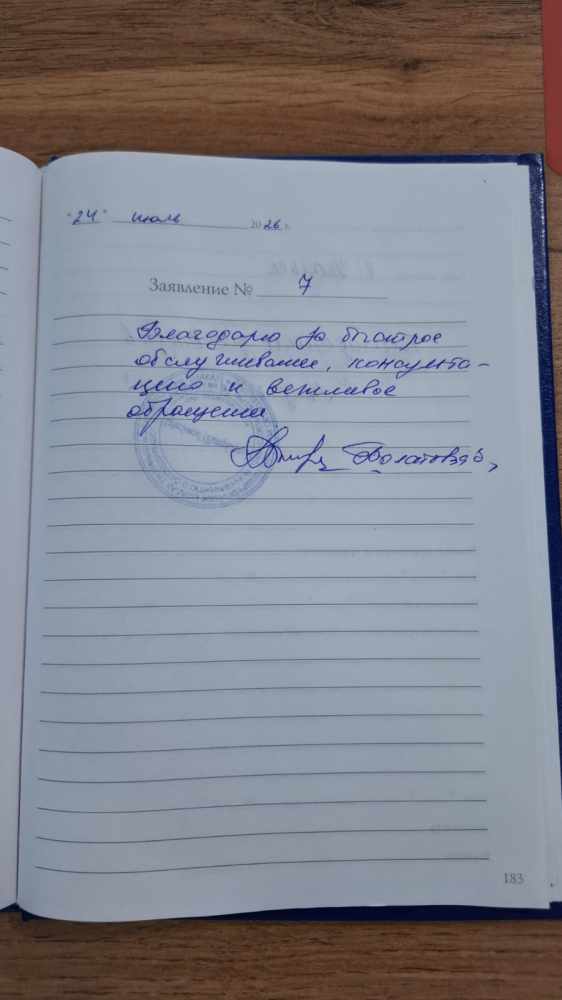 "24" июль 2026 г.
Заявление № 7
Благодарю за быстрое
обслуживание, консульта-
цию и вежливое
обращение
183